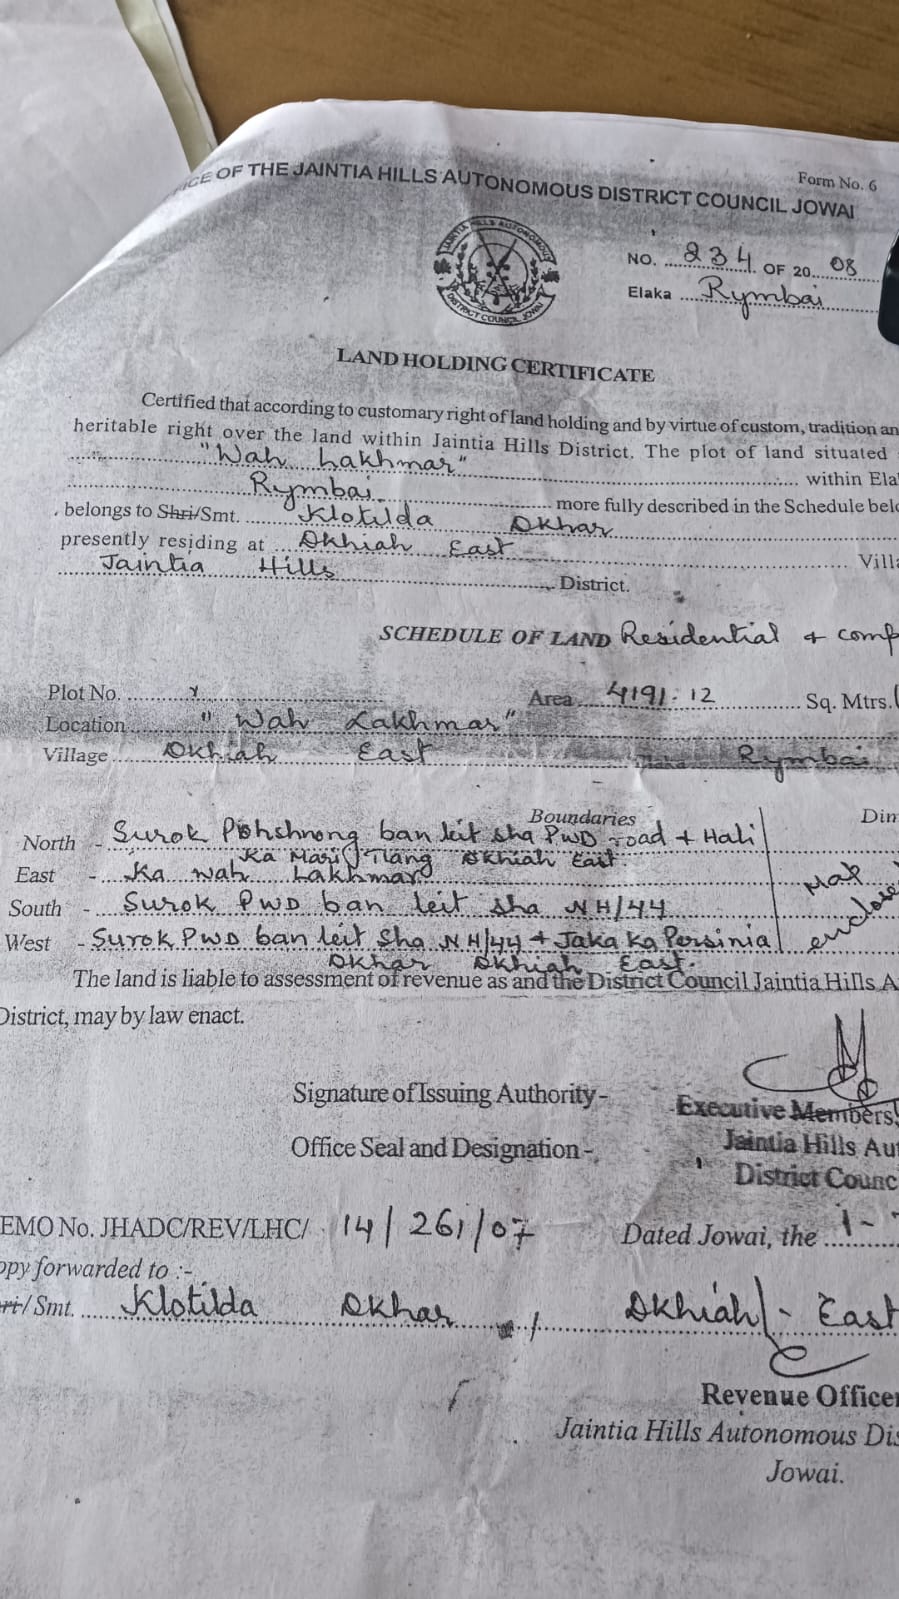 OFFICE OF THE JAINTIA HILLS AUTONOMOUS DISTRICT COUNCIL JOWAI
Form No. 6
JAINTIA HILLS AUTONOMOUS
DISTRICT COUNCIL JOWAI
NO. 234 OF 2008
Elaka Rymbai
LAND HOLDING CERTIFICATE
Certified that according to customary right of land holding and by virtue of custom, tradition an
heritable right over the land within Jaintia Hills District. The plot of land situated
"Wah Lakhmar" within Ela
Rymbai more fully described in the Schedule belo
belongs to Shri/Smt. Klotilda Dkhar
presently residing at Dkhiah East Villa
Jaintia Hills District.
SCHEDULE OF LAND Residential + comp
Plot No. Area 4191.12 Sq. Mtrs.(
Location "Wah Lakhmar"
Village Dkhiah East Rymbai
Boundaries Dim
North - Surok Pohshnong ban leit sha PWD road + Hali
Ka Mari Tlang Dkhiah East
East - Ka Wah Lakhmar
South - Surok PWD ban leit sha NH/44
West - Surok PWD ban leit sha NH/44 + Jaka Ka Persinia
Dkhar Dkhiah East.
Map enclose
The land is liable to assessment of revenue as and the District Council Jaintia Hills A
District, may by law enact.
Signature of Issuing Authority -
Executive Members
Office Seal and Designation -
Jaintia Hills Aut
District Counc
EMO No. JHADC/REV/LHC/ 14/261/07 Dated Jowai, the 1-
opy forwarded to :-
ri/Smt. Klotilda Dkhar, Dkhiah - East
Revenue Officer
Jaintia Hills Autonomous Dis
Jowai.